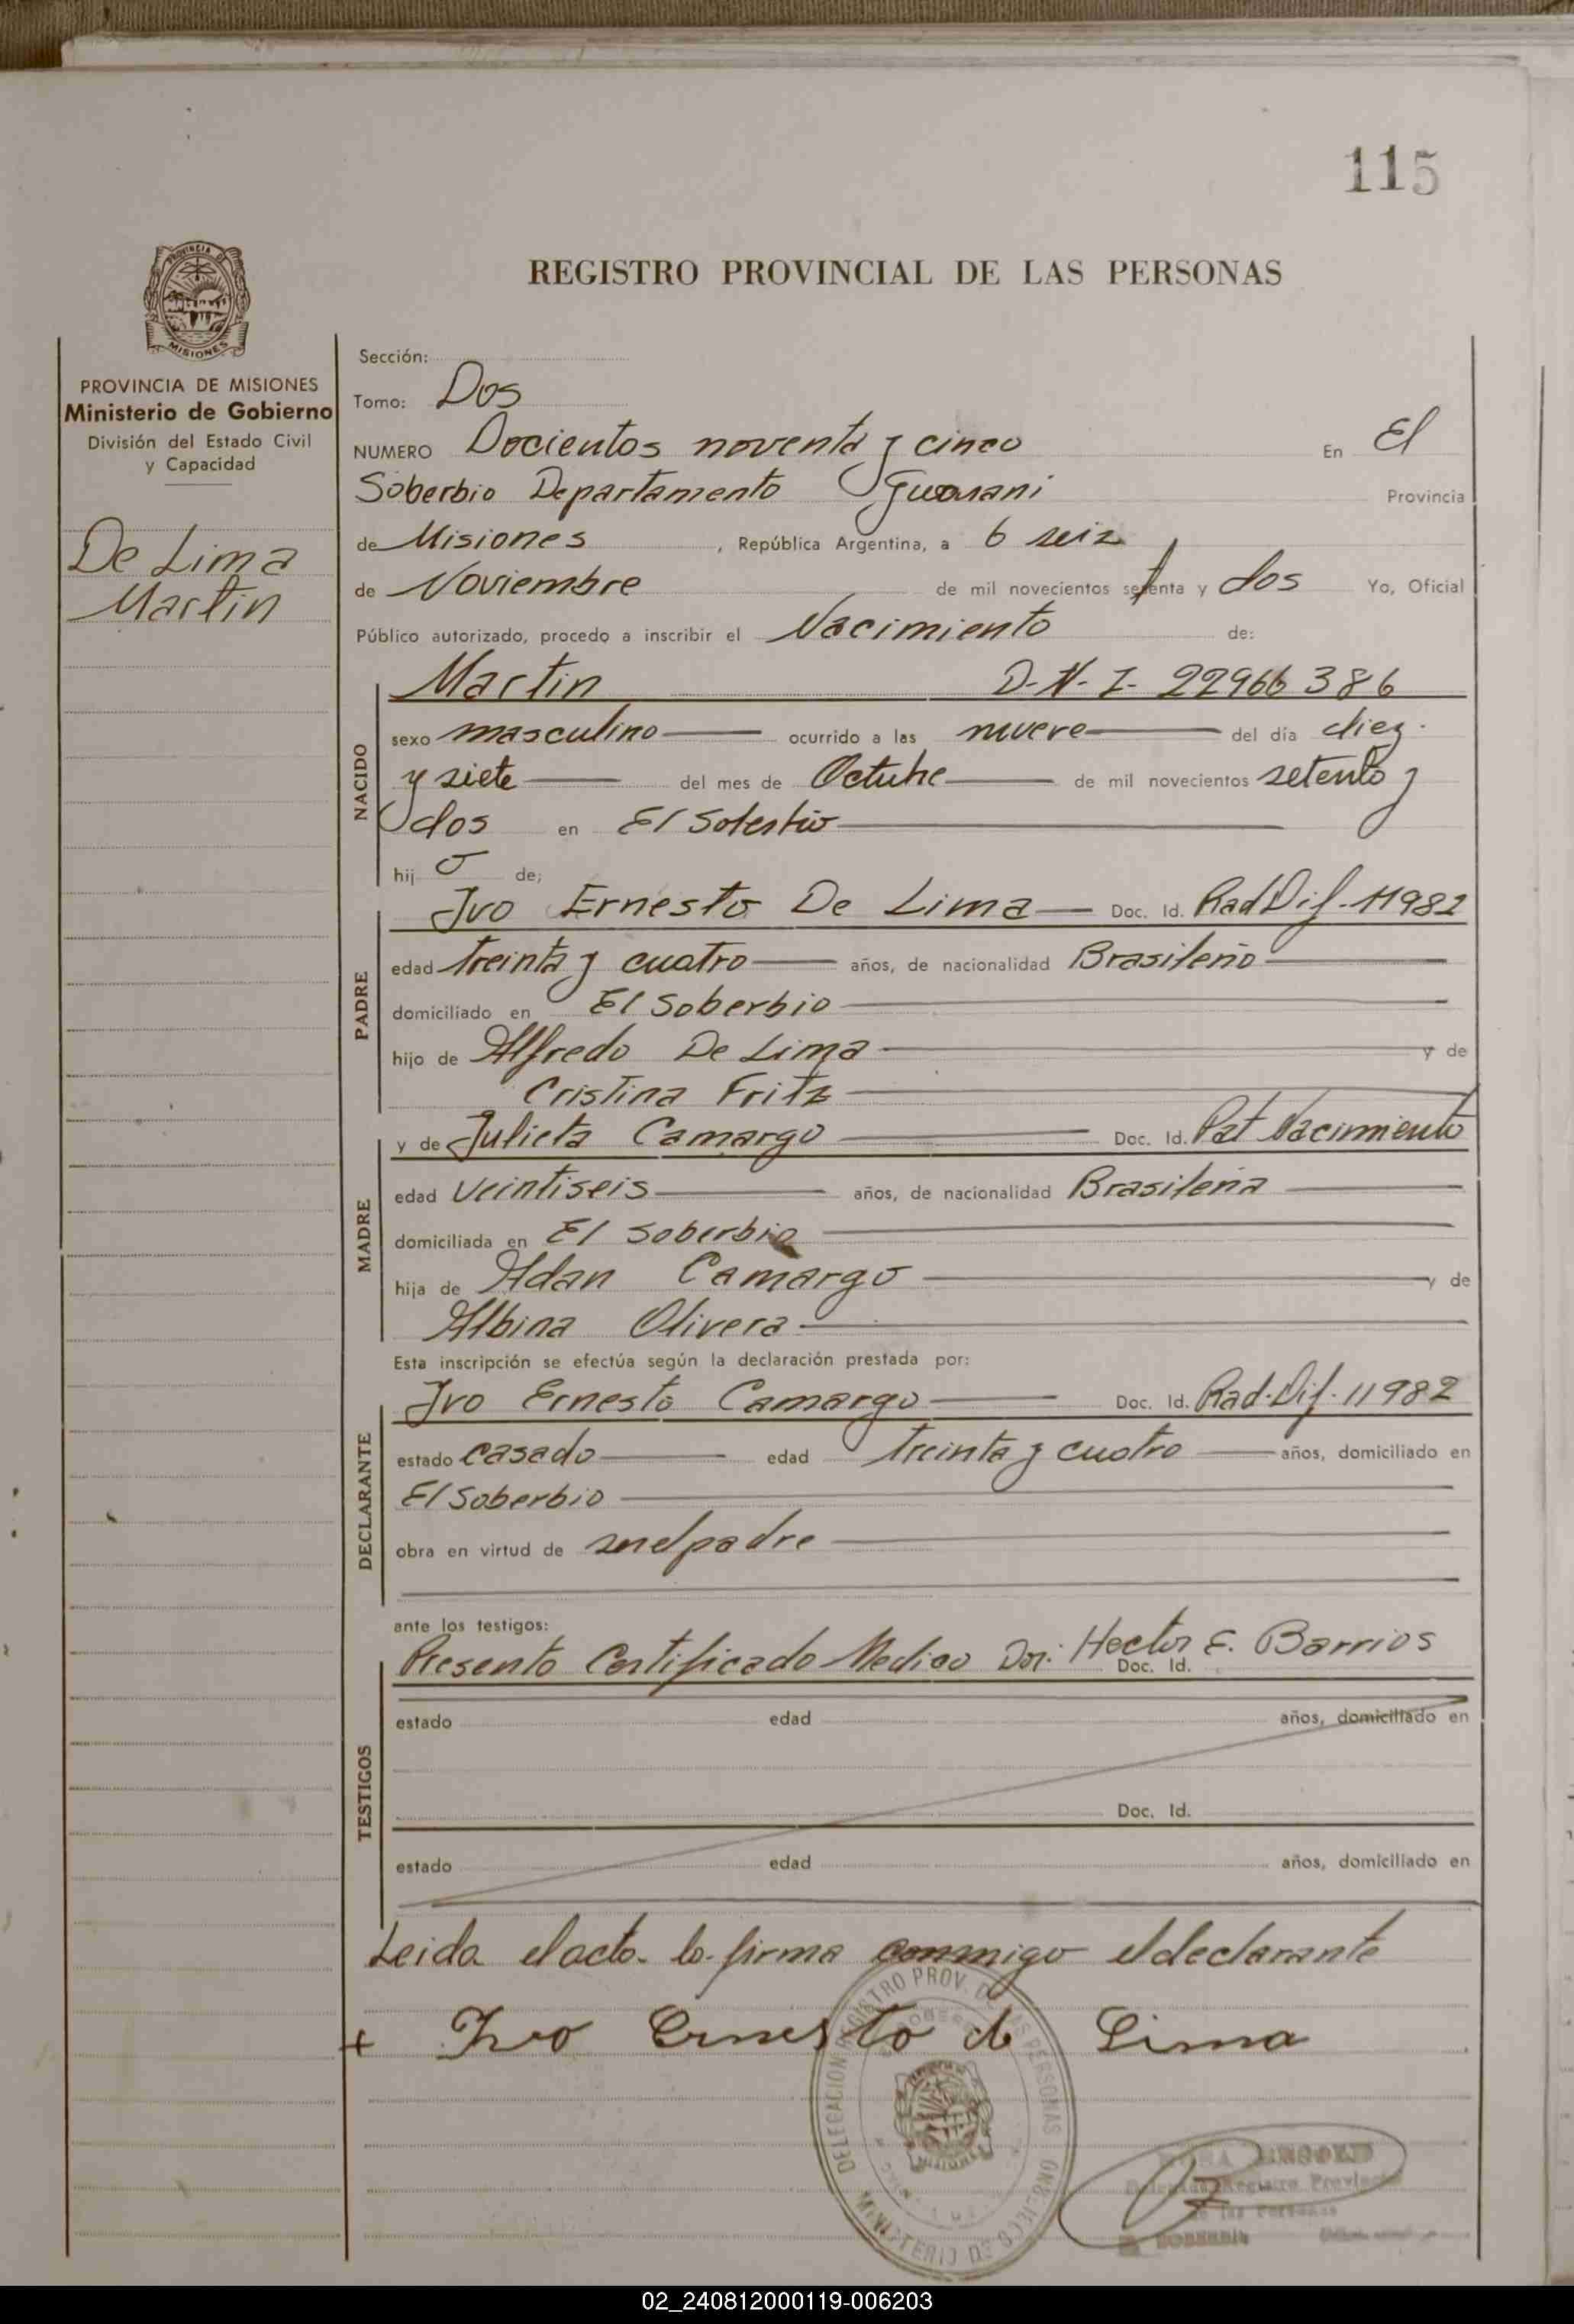 115
REGISTRO PROVINCIAL DE LAS PERSONAS
PROVINCIA DE MISIONES
Ministerio de Gobierno
División del Estado Civil
y Capacidad
De Lima
Martin
Sección:
Tomo: Dos
NUMERO Docientos noventa y cinco En El
Soberbio Departamento Guarani Provincia
de Misiones, República Argentina, a 6 seiz
de Noviembre de mil novecientos setenta y dos Yo, Oficial
Público autorizado, procedo a inscribir el Nacimiento de:
NACIDO
Martin D-N-I- 22966386
sexo masculino ocurrido a las nueve del día diez
y siete del mes de Octubre de mil novecientos setenta y
dos en El Soberbio
hij o de;
PADRE
Ivo Ernesto De Lima Doc. Id. Rad Dif. 11982
edad treinta y cuatro años, de nacionalidad Brasileño
domiciliado en El Soberbio
hijo de Alfredo De Lima y de
Cristina Fritz
MADRE
y de Julieta Camargo Doc. Id. Pat Nacimiento
edad veintiseis años, de nacionalidad Brasileña
domiciliada en El Soberbio
hija de Adan Camargo y de
Albina Olivera
Esta inscripción se efectúa según la declaración prestada por:
DECLARANTE
Ivo Ernesto Camargo Doc. Id. Rad. Dif. 11982
estado casado edad treinta y cuatro años, domiciliado en
El Soberbio
obra en virtud de ser el padre
ante los testigos:
TESTIGOS
Presento Certificado Medico Dor. Hector E. Barrios
Doc. Id.
estado edad años, domiciliado en
Doc. Id.
estado edad años, domiciliado en
Leida el acto lo firma conmigo el declarante
+ Ivo Ernesto de Lima
DELEGACION REGISTRO PROV. DE LAS PERSONAS
MINISTERIO DE GOBIERNO
MISIONES
Registro Provincial
de las Personas
SOBERBIO
02_240812000119-006203